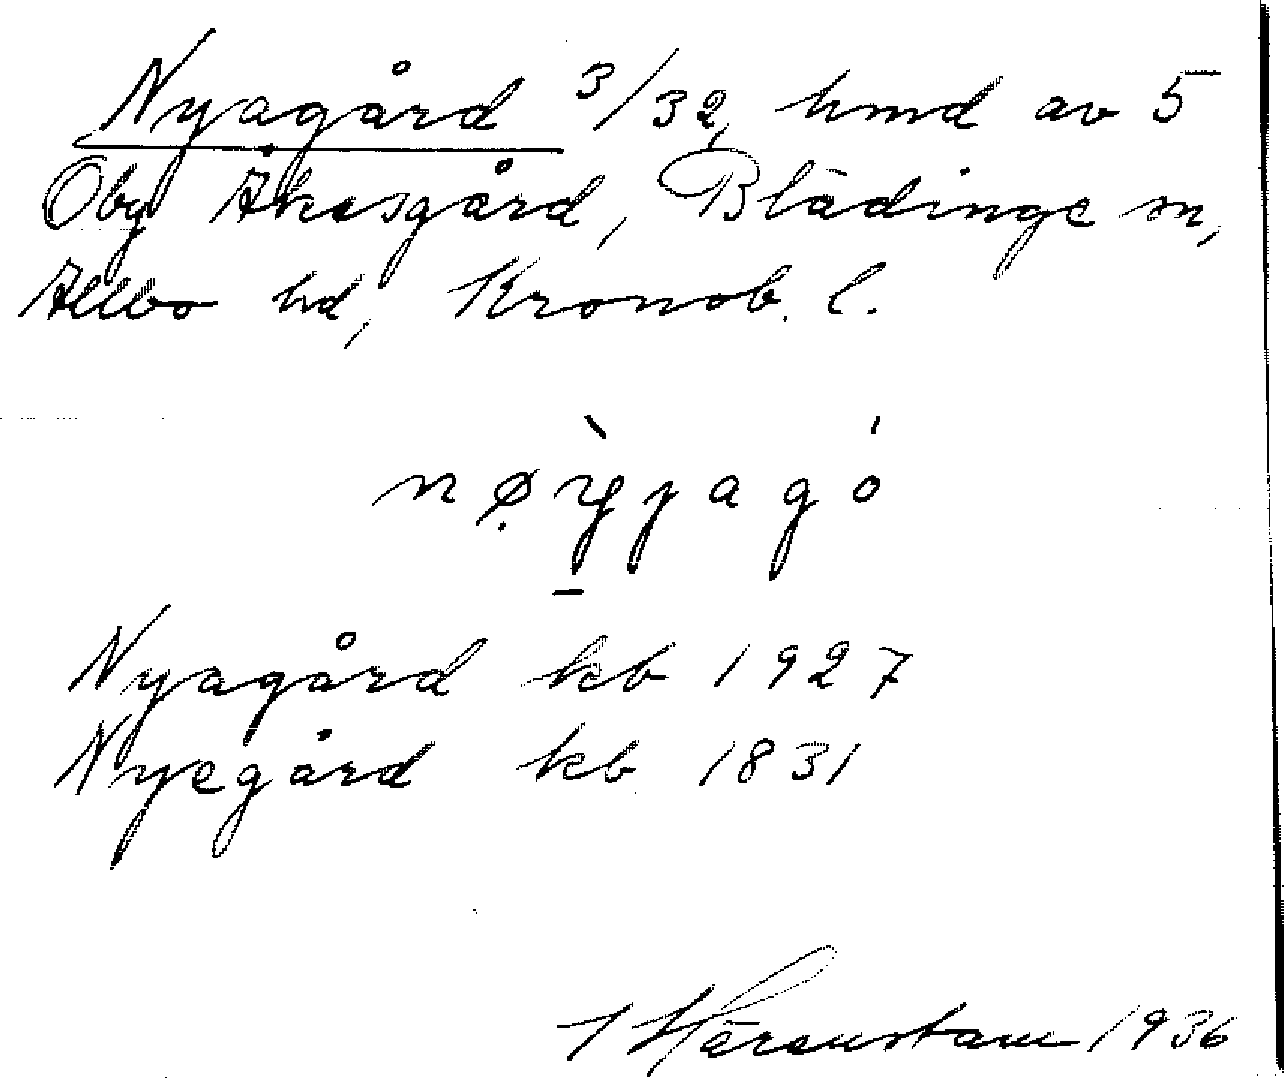 Nyagård 3/32, hmd av 5
Oby Åkesgård, Blädinge sn,
Allbo hd, Kronob. l.
nø̣̀y̱jagó
Nyagård kb 1927
Nyegård kb 1831
Härenstam 1936